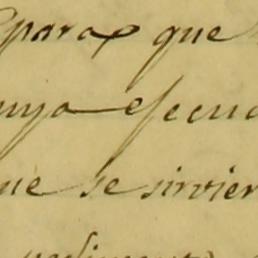 para que
uya esecu
ue se sirvier